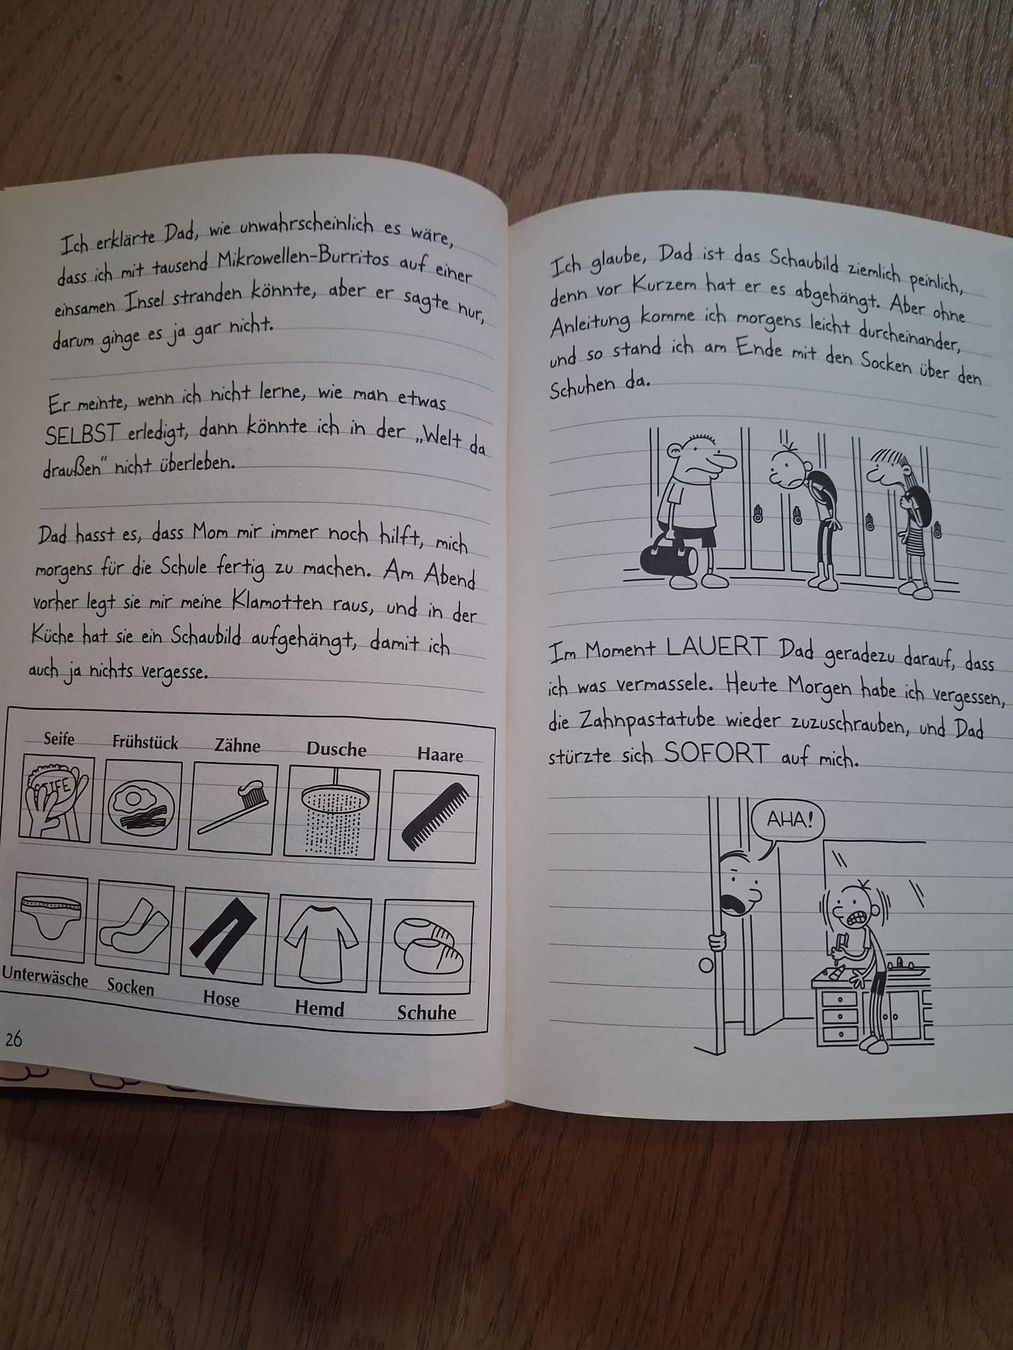 Ich erklärte Dad, wie unwahrscheinlich es wäre,
dass ich mit tausend Mikrowellen-Burritos auf einer
einsamen Insel stranden könnte, aber er sagte nur,
darum ginge es ja gar nicht.
Er meinte, wenn ich nicht lerne, wie man etwas
SELBST erledigt, dann könnte ich in der „Welt da
draußen“ nicht überleben.
Dad hasst es, dass Mom mir immer noch hilft, mich
morgens für die Schule fertig zu machen. Am Abend
vorher legt sie mir meine Klamotten raus, und in der
Küche hat sie ein Schaubild aufgehängt, damit ich
auch ja nichts vergesse.
Seife Frühstück Zähne Dusche Haare
SEIFE
Unterwäsche Socken Hose Hemd Schuhe
26
Ich glaube, Dad ist das Schaubild ziemlich peinlich,
denn vor Kurzem hat er es abgehängt. Aber ohne
Anleitung komme ich morgens leicht durcheinander,
und so stand ich am Ende mit den Socken über den
Schuhen da.
Im Moment LAUERT Dad geradezu darauf, dass
ich was vermassele. Heute Morgen habe ich vergessen,
die Zahnpastatube wieder zuzuschrauben, und Dad
stürzte sich SOFORT auf mich.
AHA!